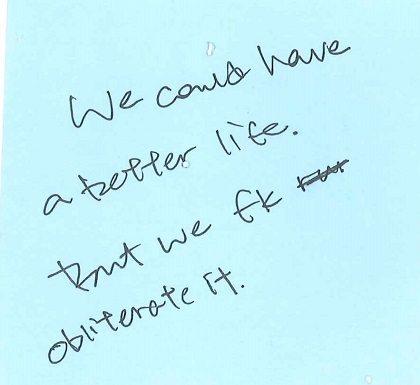 We could have
a better life.
But we fk
obliterate it.